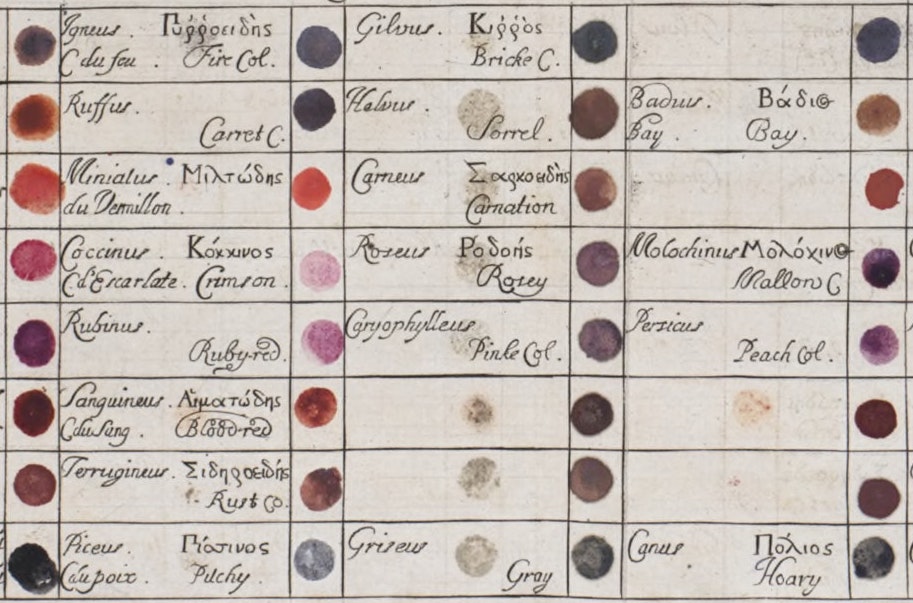 Igneus. Πυῤῥοειδὴς
C du feu. Fire Col.
Gilvus. Κιῤῥὸς
Bricke C.
Ruffus.
Carret C.
Helvus.
Sorrel.
Badius. Βάδιος
Bay. Bay.
Miniatus. Μιλτώδης
du Vermillon.
Carneus Σαρκοειδὴς
Carnation
Coccinus. Κόκκινος
C. d'Escarlate. Crimson.
Roseus Ροδοής
Rosey
Molochinus Μολόχινος
Mallow C
Rubinus.
Ruby-red.
Caryophylleus
Pinke Col.
Persicus
Peach Col.
Sanguineus. Αἱματώδης
C du Sang. Blood-red
Ferrugineus. Σιδηροειδὴς
Rust Co.
Piceus. Πίσσινος
Pitchy.
Griseus
Gray
Canus Πόλιος
Hoary